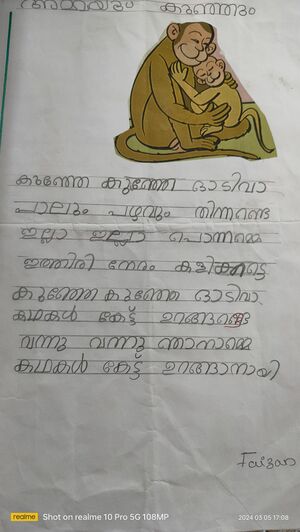 അമ്മയും കുഞ്ഞും
കുഞ്ഞേ കുഞ്ഞേ ഓടിവാ
പാലും പഴവും തിന്നണ്ടെ
ഇല്ലാ ഇല്ലാ പൊന്നമ്മെ
ഇത്തിരി നേരം കളിക്കട്ടെ
കുഞ്ഞേ കുഞ്ഞേ ഓടിവാ.
കഥകൾ കേട്ട് ഉറങ്ങണ്ടെ
വന്നു വന്നു ഞാനമ്മെ
കഥകൾ കേട്ട് ഉറങ്ങാനായി
Faizan
realme Shot on realme 10 Pro 5G 108MP 2024.03.05 17:08